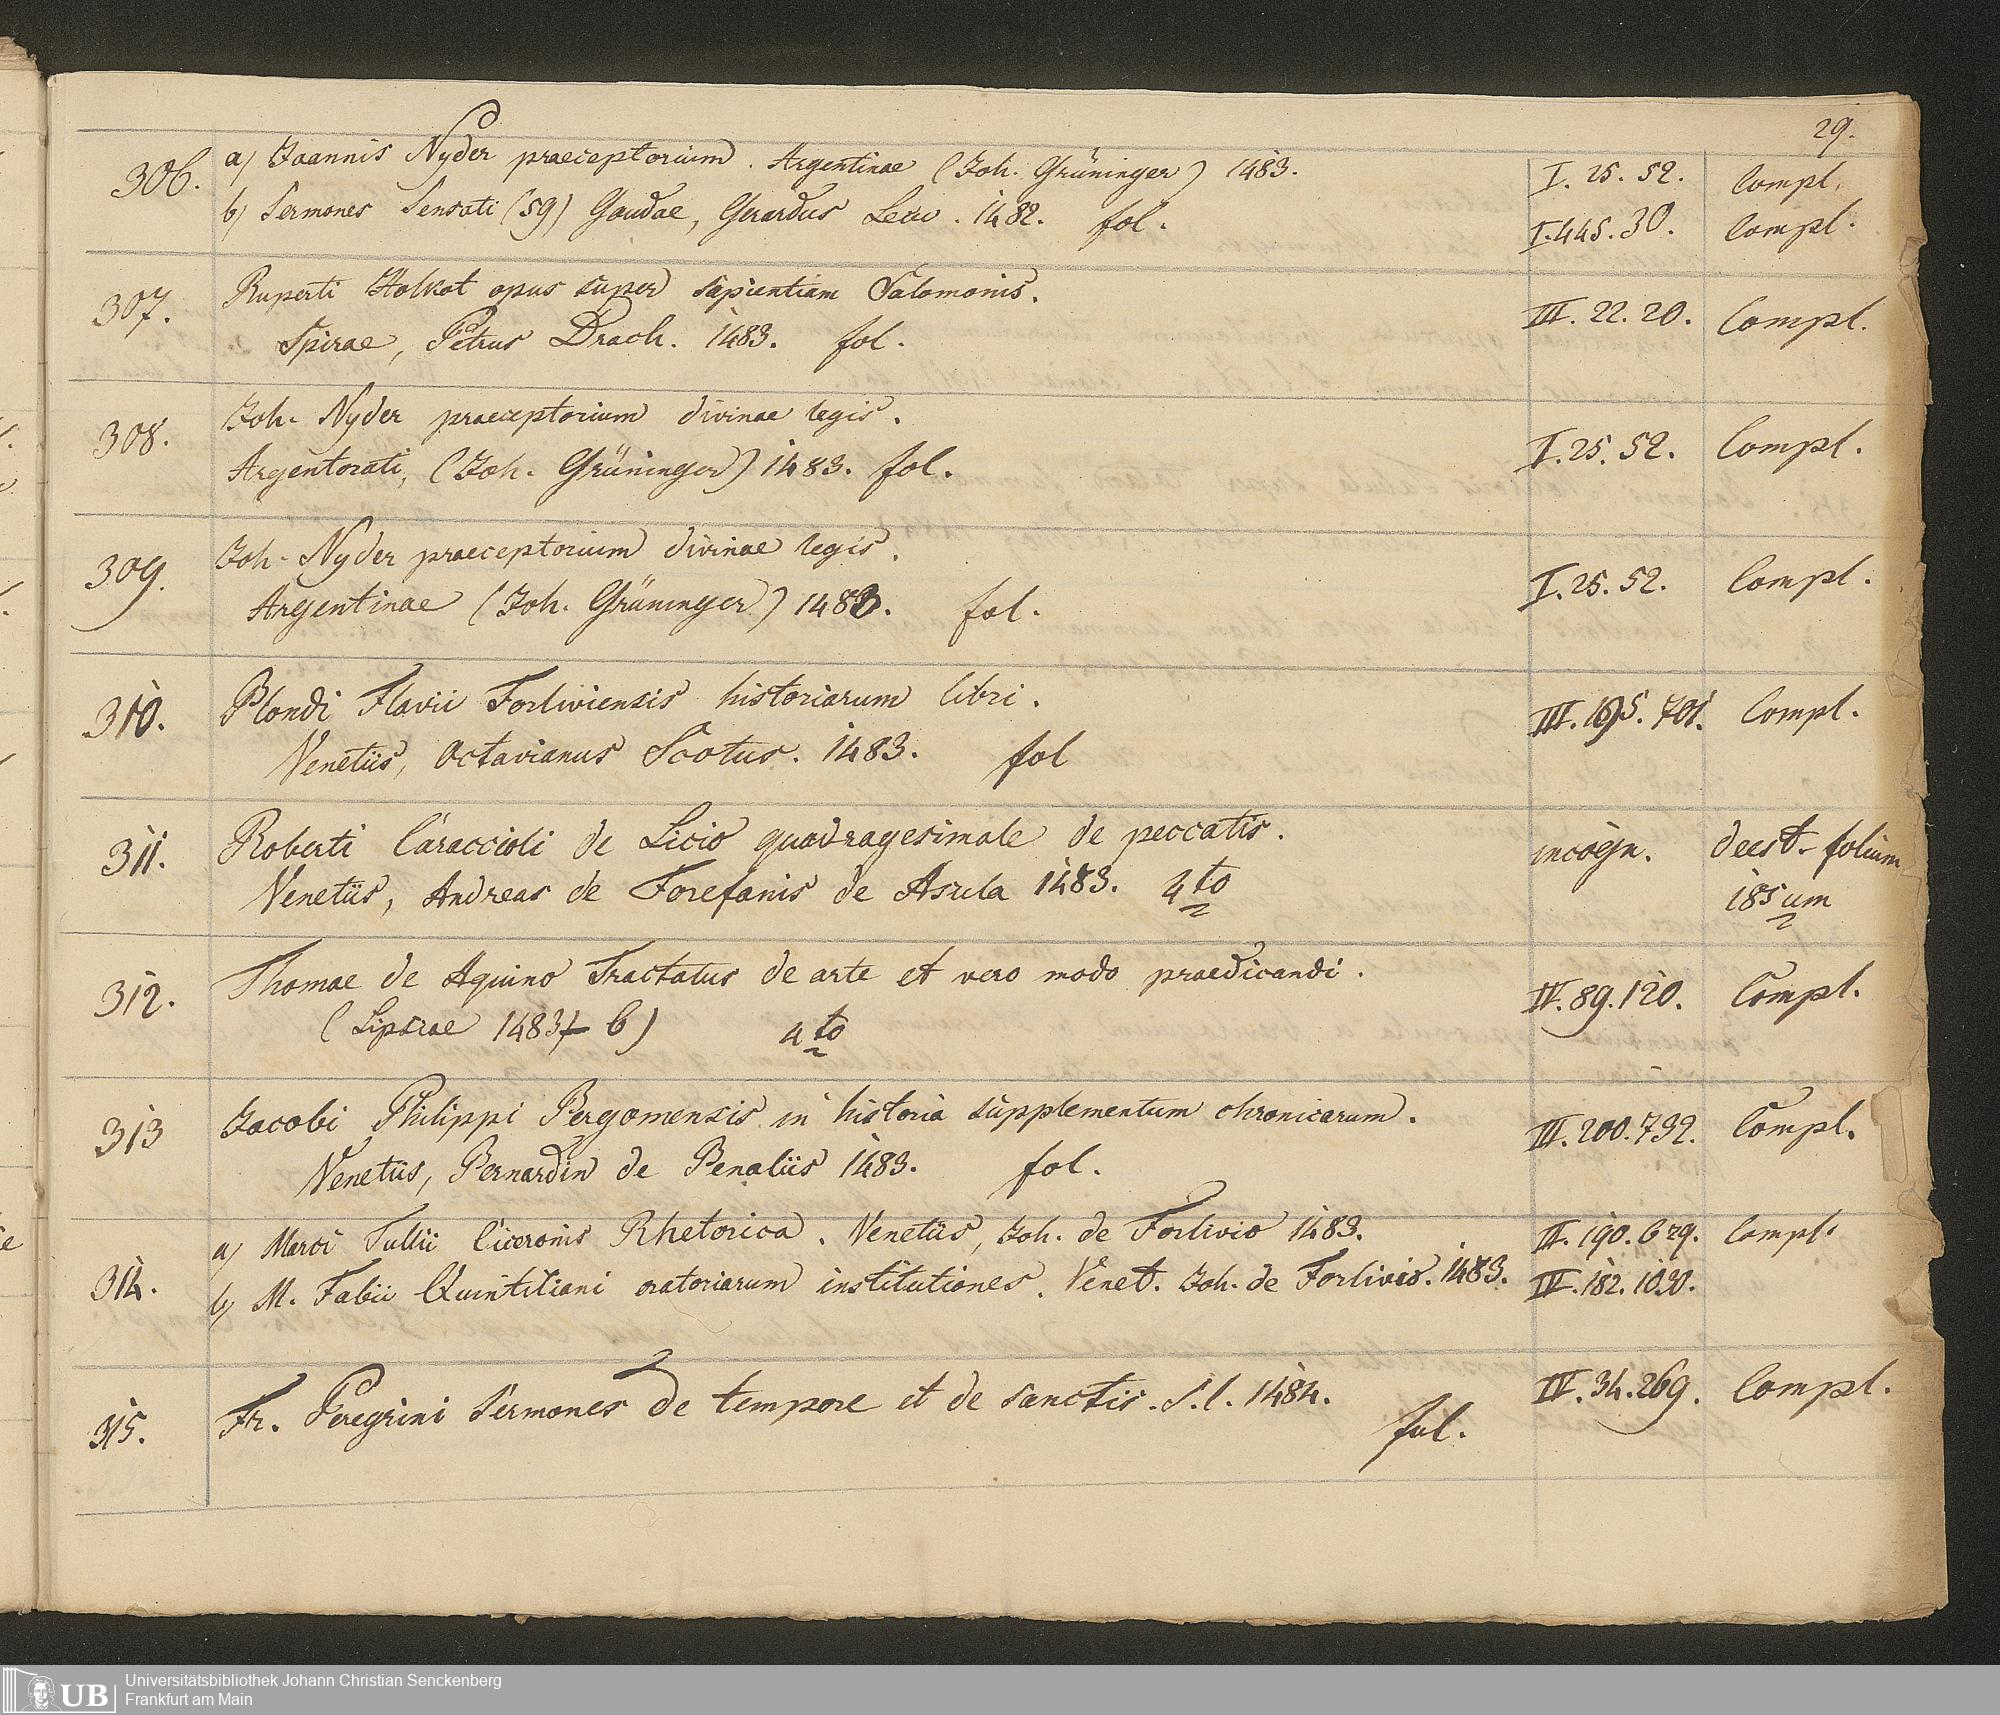 29.
306. a) Joannis Nyder praeceptorium. Argentinae (Joh. Grüninger) 1483. I. 25. 52. Compl.
b) Sermones Sensati (59) Goudae, Gerardus Leeu. 1482. fol. I. 445. 30. Compl.
307. Ruperti Holkot opus super sapientiam Salomonis. III. 22. 20. Compl.
Spirae, Petrus Drach. 1483. fol.
308. Joh. Nyder praeceptorium divinae legis. I. 25. 52. Compl.
Argentorati, (Joh. Grüninger) 1483. fol.
309. Joh. Nyder praeceptorium divinae legis. I. 25. 52. Compl.
Argentinae (Joh. Grüninger) 1483. fol.
310. Blondi Flavii Forliviensis historiarum libri. III. 195. 701. Compl.
Venetiis, Octavianus Scotus. 1483. fol
311. Roberti Caraccioli de Licio quadragesimale de peccatis. incogn. deest folium
Venetiis, Andreas de Torefanis de Asula 1483. 4to 185um
312. Thomae de Aquino Tractatus de arte et vero modo praedicandi. IV. 89. 120. Compl.
(Lipsiae 1483 b) 4to
313 Jacobi Philippi Bergomensis in historia supplementum chronicarum. III. 200. 732. Compl.
Venetiis, Bernardin de Benaliis 1483. fol.
314. a) Marci Tullii Ciceronis Rhetorica. Venetiis, Joh. de Forlivio 1483. II. 190. 629. Compl.
b) M. Fabii Quintiliani oratoriarum institutiones. Venet. Joh. de Forlivio. 1483. IV. 182. 1030.
315. Fr. Peregrini Sermones de tempore et de sanctis. S. l. 1484. IV. 34. 269. Compl.
fol.
UB Universitätsbibliothek Johann Christian Senckenberg
Frankfurt am Main